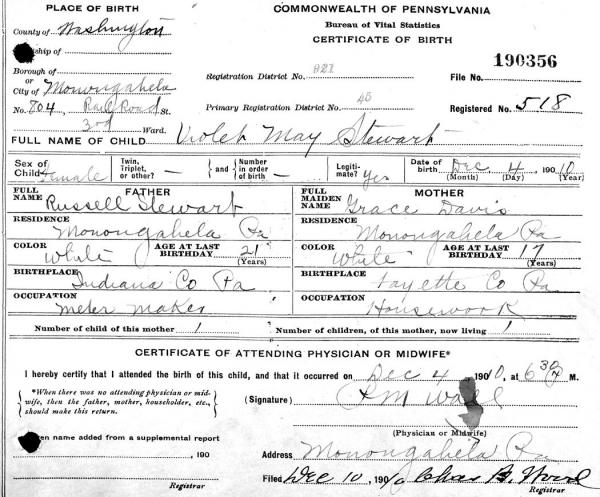 PLACE OF BIRTH
COMMONWEALTH OF PENNSYLVANIA
County of Washington
Bureau of Vital Statistics
CERTIFICATE OF BIRTH
ship of
Borough of
or
City of Monongahela
Registration District No. 927
File No. 190356
No. 704, Rail Road St.
3rd Ward.
Primary Registration District No. 45
Registered No. 518
FULL NAME OF CHILD Violet May Stewart
Sex of Child Female
Twin, Triplet, or other? —
and
Number in order of birth —
Legiti-mate? Yes
Date of birth Dec 4, 1910
(Month) (Day) (Year)
FATHER
MOTHER
FULL NAME Russell Stewart
FULL MAIDEN NAME Grace Davis
RESIDENCE Monongahela Pa
RESIDENCE Monongahela Pa
COLOR White AGE AT LAST BIRTHDAY 21 (Years)
COLOR White AGE AT LAST BIRTHDAY 17 (Years)
BIRTHPLACE Indiana Co Pa
BIRTHPLACE Fayette Co Pa
OCCUPATION Meter Maker
OCCUPATION Housework
Number of child of this mother 1
Number of children, of this mother, now living 1
CERTIFICATE OF ATTENDING PHYSICIAN OR MIDWIFE*
I hereby certify that I attended the birth of this child, and that it occurred on Dec 4, 1910, at 6 30 M.
*When there was no attending physician or mid-
wife, then the father, mother, householder, etc.,
should make this return.
(Signature) Wall
(Physician or Midwife)
en name added from a supplemental report
, 190
Address Monongahela Pa
Filed Dec 10, 190 Chas B. Wood
Registrar
Registrar